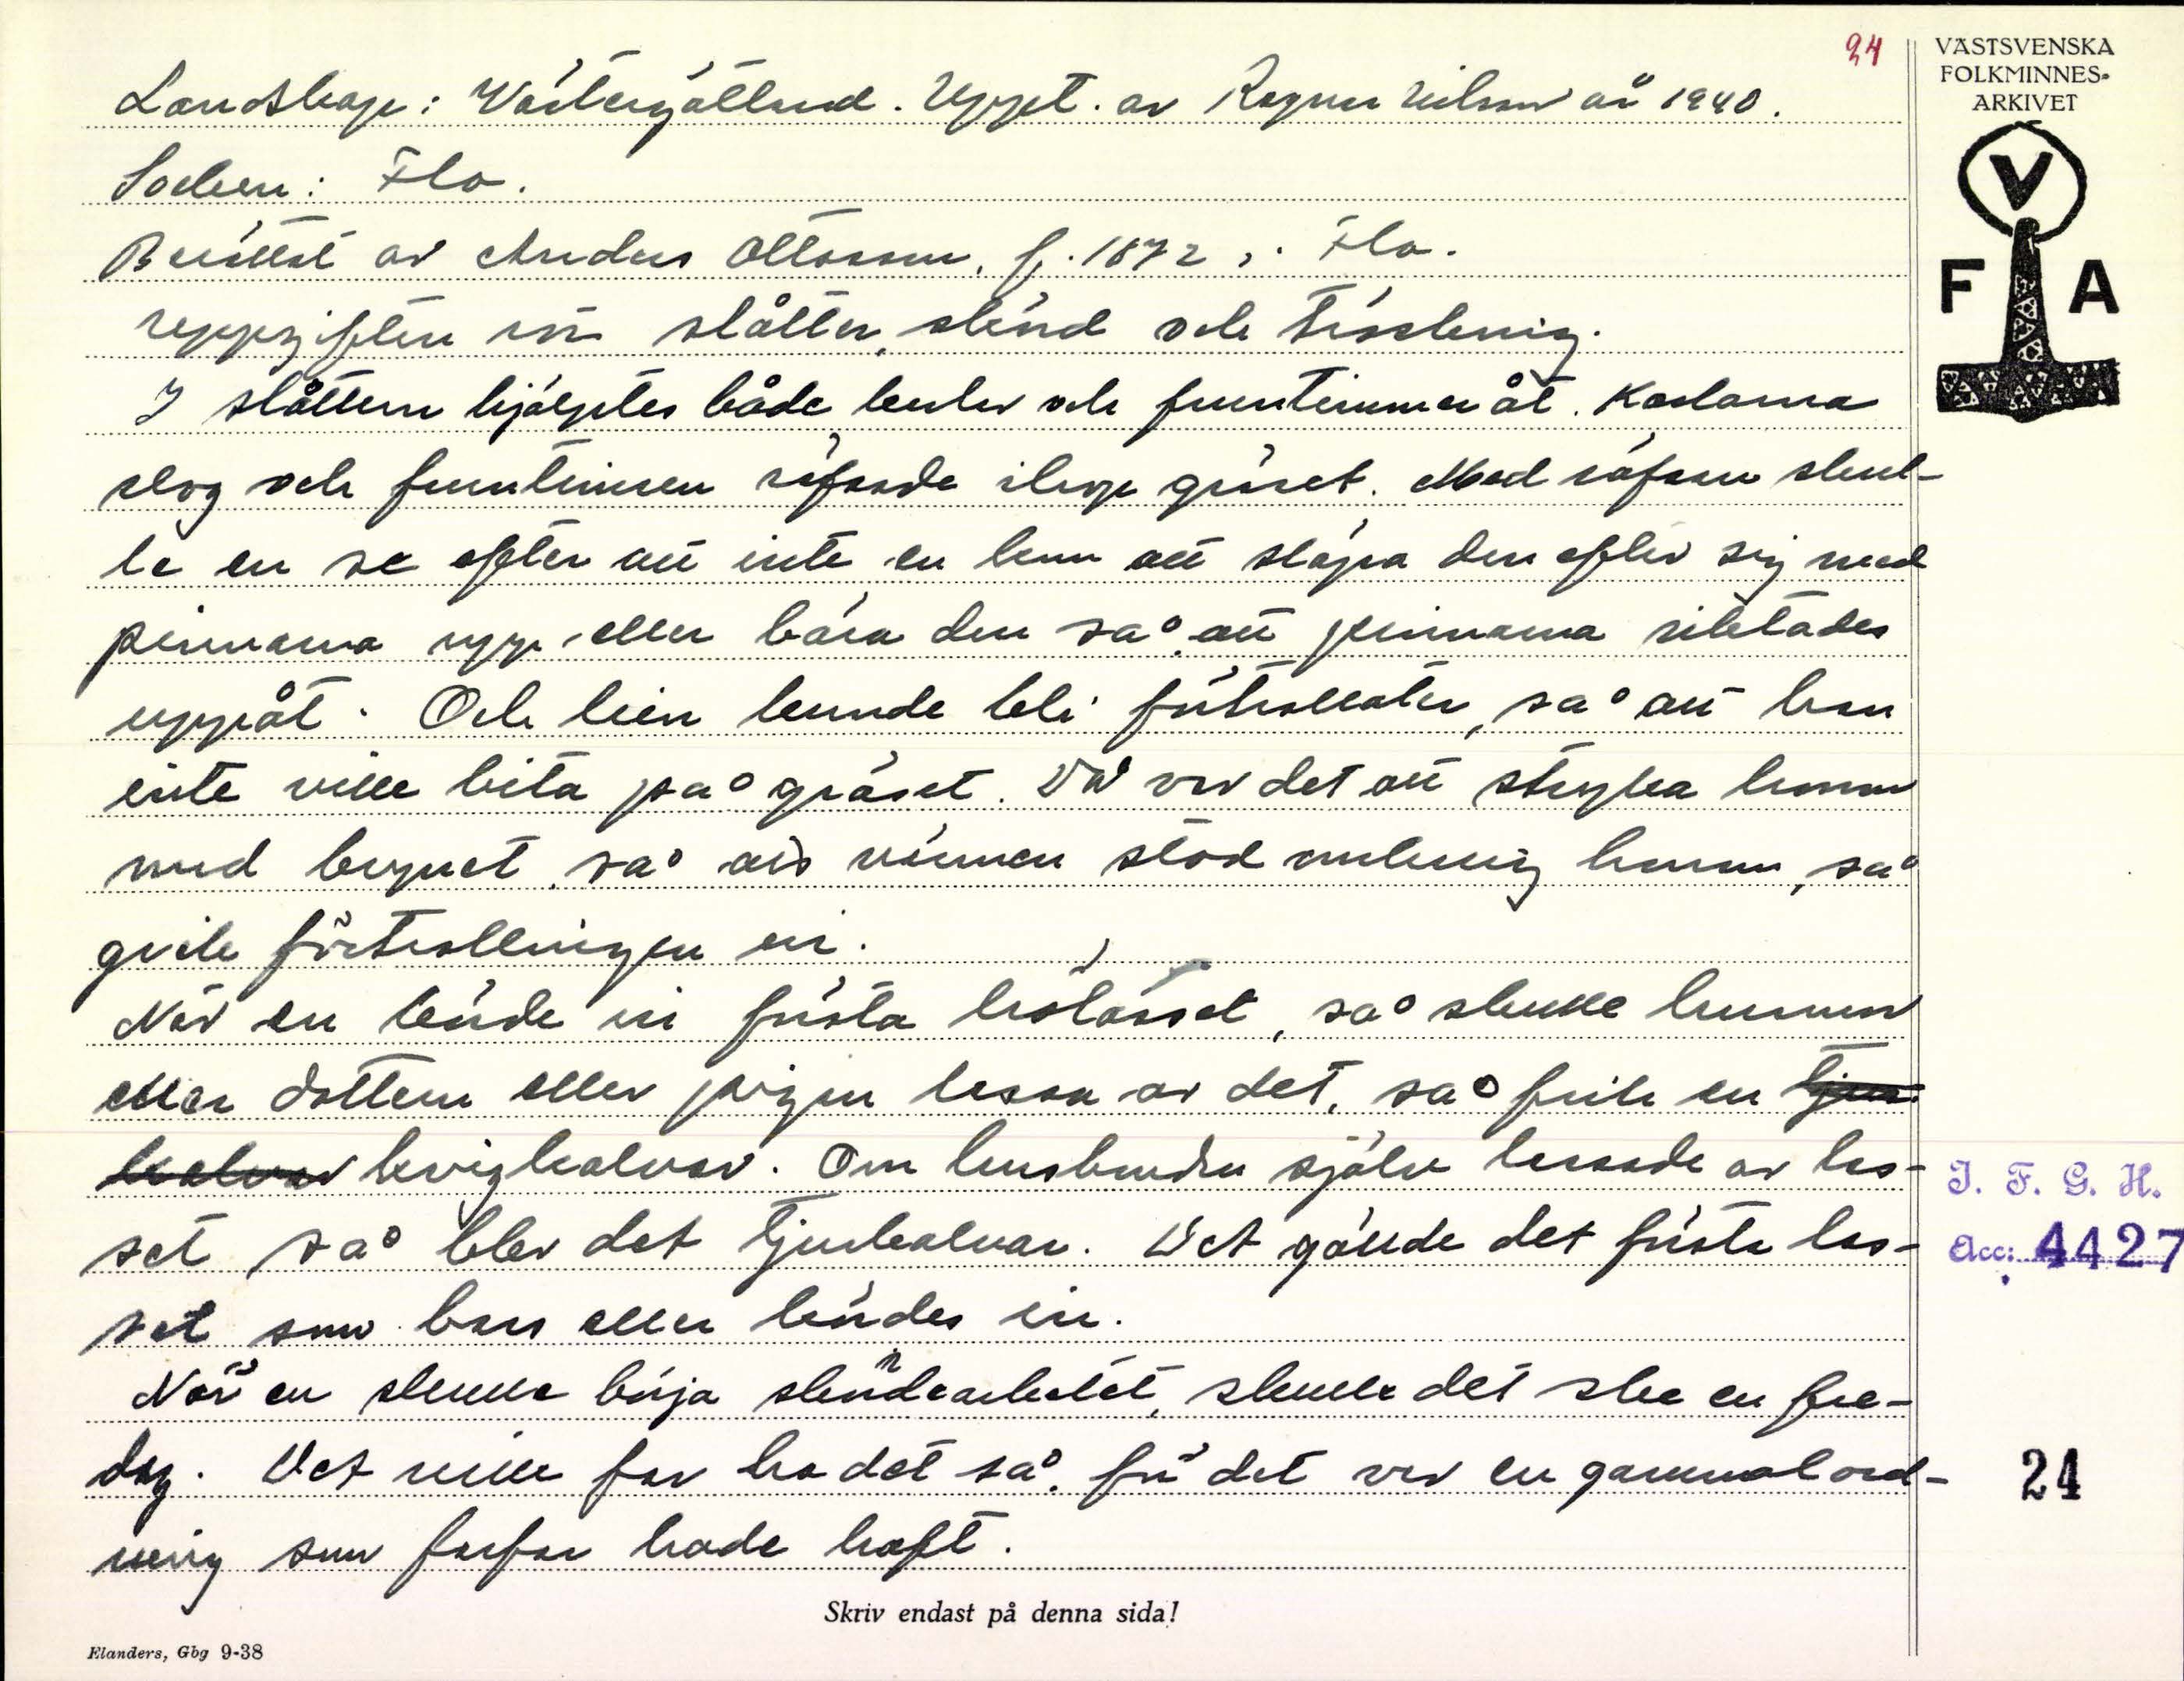 24
VÄSTSVENSKA
FOLKMINNES-
ARKIVET
V
F A
Landskap: Västergötland. Uppt. av Ragnar Nilsson år 1940.
Socken: Flo.
Berättat av Anders Ottosson, f. 1872, i Flo.
Uppgifter om slåtter, skörd och tröskning.
I slåttern hjälptes både karlar och fruntimmer åt. Karlarna
slog och fruntimren räfsade ihop gräset. Med räfsan skul-
le en se efter att inte en kom att släpa den efter sig med
pinnarna upp, eller bära den så, att pinnarna riktades
uppåt. Och lien kunde bli förtrollater, så att han
inte ville bita på gräset. Då var det att stryka honom
med brynet, så att vinnen stod omkring honom, så
gick förtrollningen ur.
När en körde in första hölasset, så skulle hustrun
eller dottern eller pigan lassa av det, så fick en tjur-
kalvar kvigkalvar. Om husbonden själv lassade av las-
set så blev det tjurkalvar. Det gällde det första las-
set som bars eller kördes in.
När en skulle börja skördearbetet, skulle det ske en fre-
dag. Det ville far ha det så, för det var en gammal ord-
ning som farfar hade haft.
I. F. G. H.
Acc: 4427
24
Skriv endast på denna sida!
Elanders, Gbg 9-38